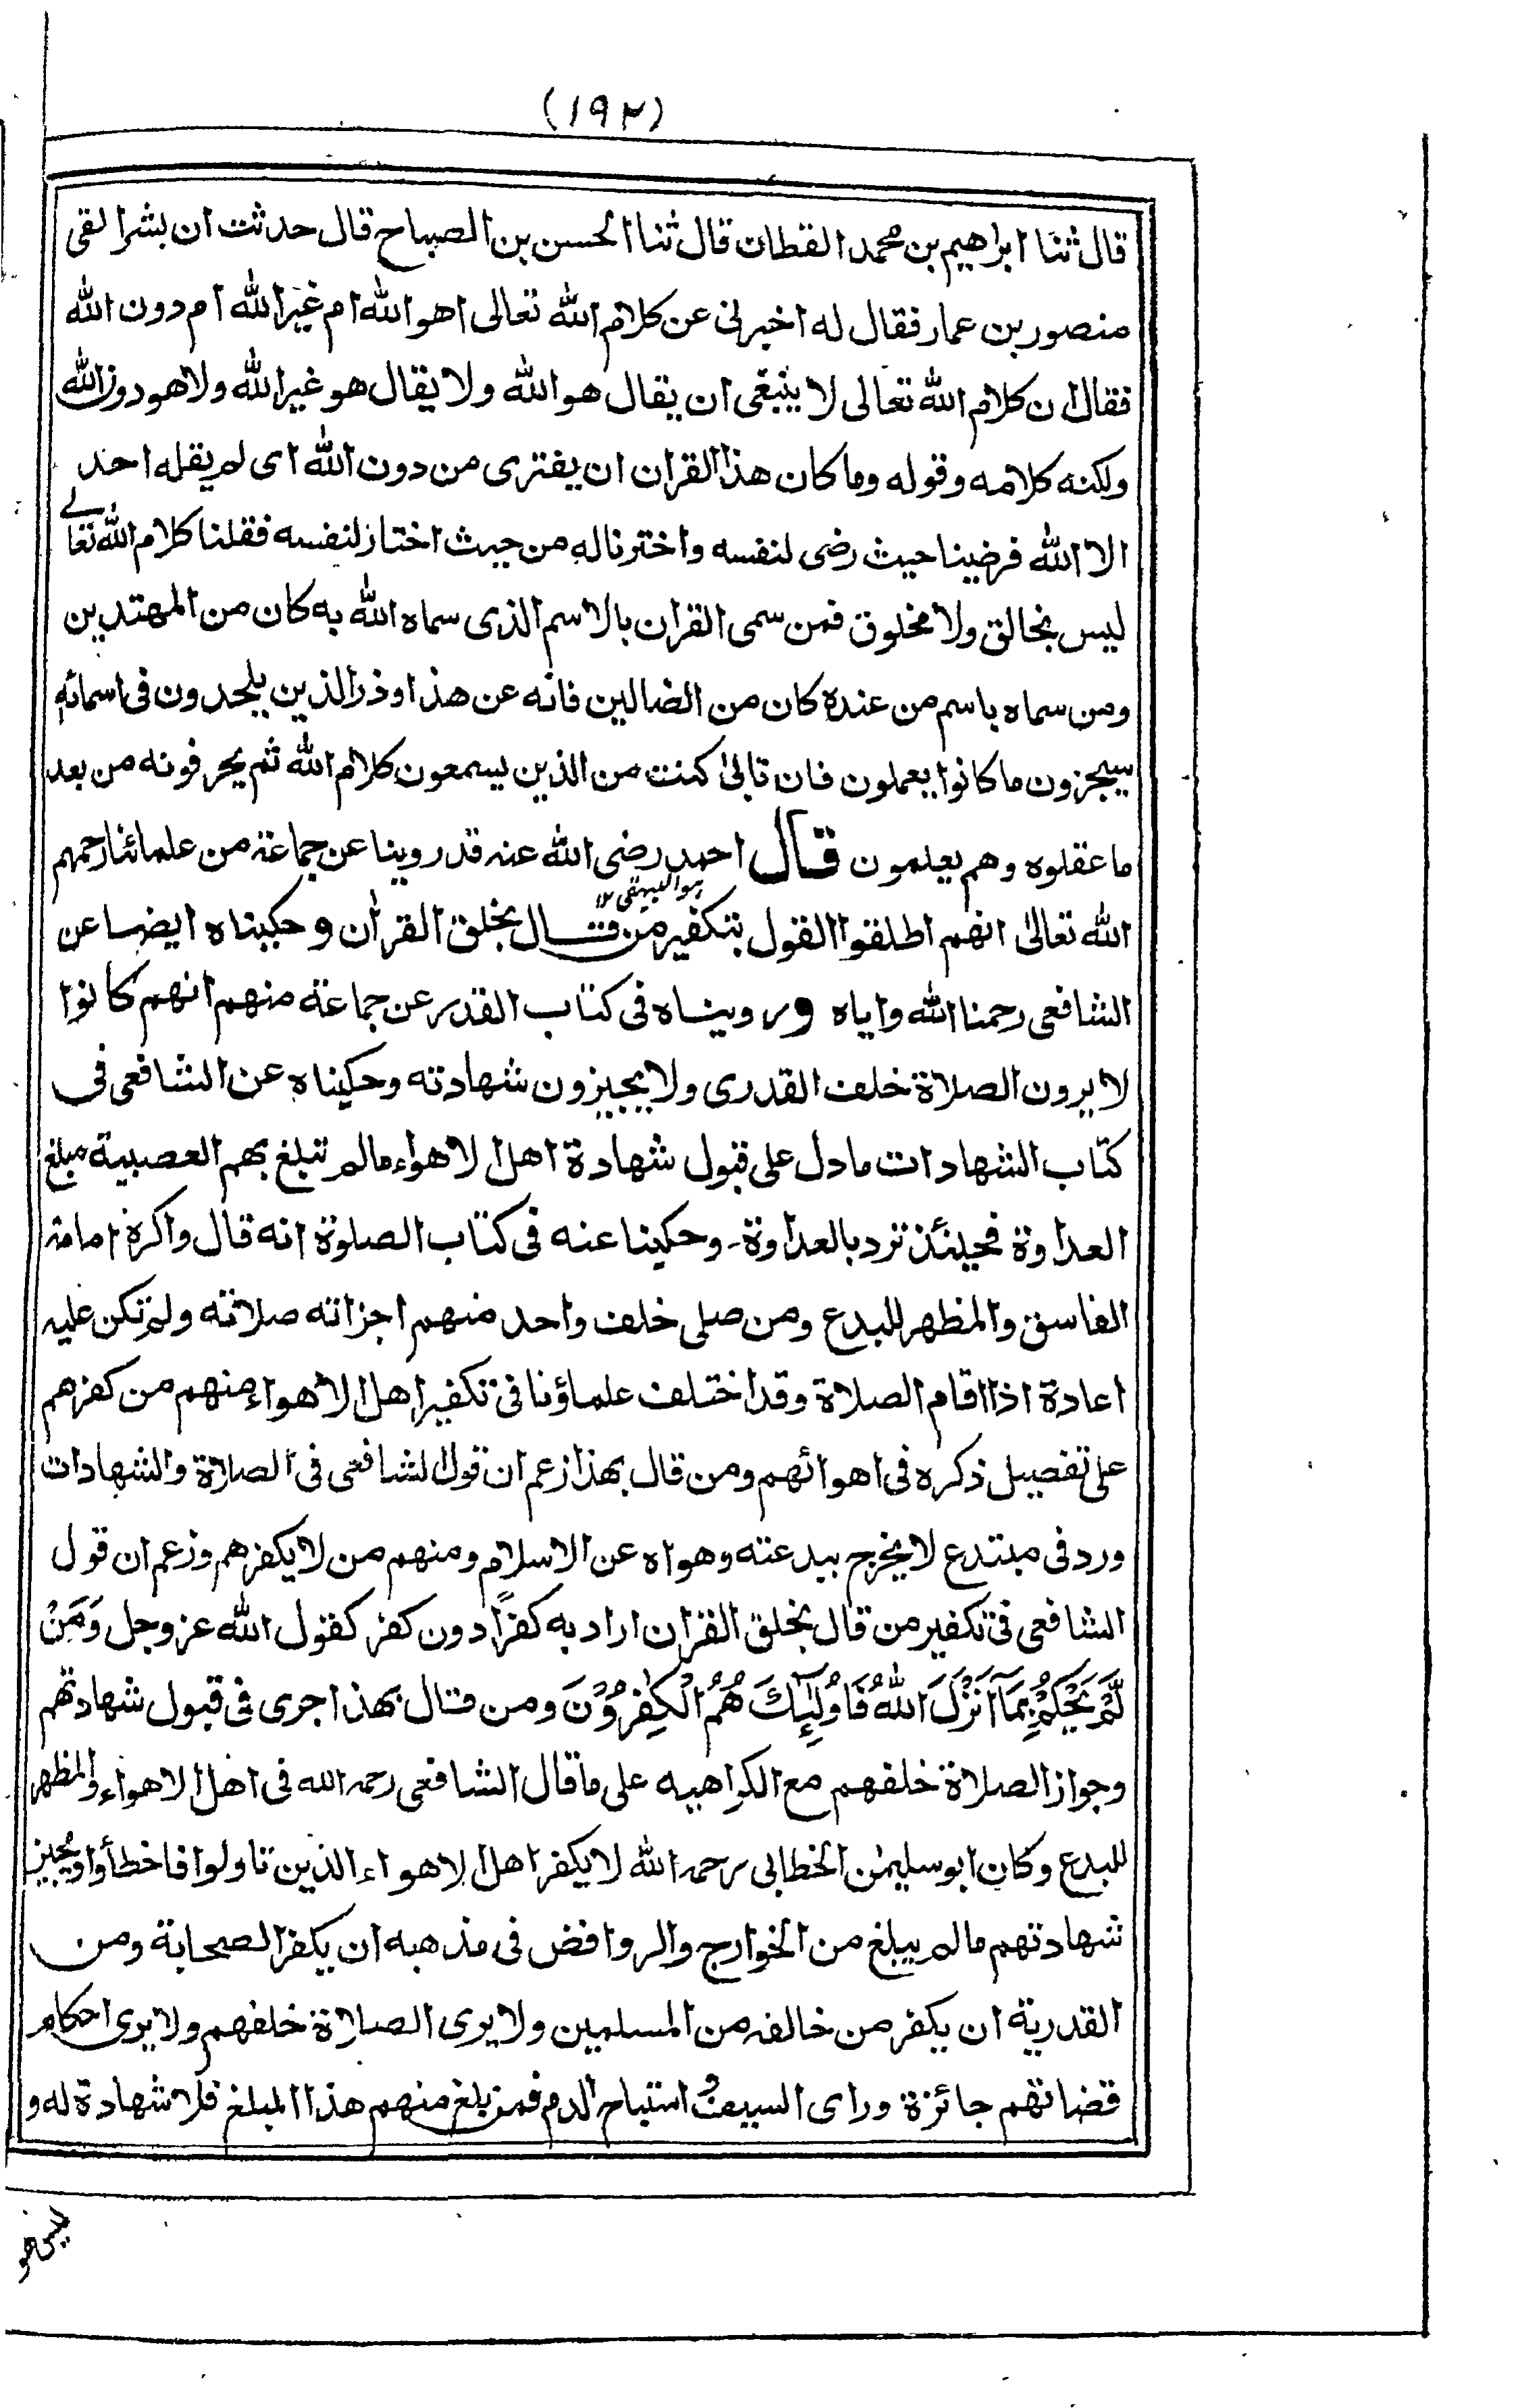 (١٩٢)
قال ثنا ابراهيم بن محمد القطان قال ثنا الحسن بن الصباح قال حدثت ان بشرا لقى
منصور بن عمار فقال له اخبرنى عن كلام الله تعالى اهو الله ام غير الله ام دون الله
فقال ان كلام الله تعالى لا ينبغى ان يقال هو الله ولا يقال هو غير الله ولا هو دون الله
ولكنه كلامه وقوله وما كان هذا القران ان يفترى من دون الله اى لم يقله احد
الا الله فرضينا حيث رضى لنفسه واخترنا له من حيث اختار لنفسه فقلنا كلام الله تعالى
ليس بخالق ولا مخلوق فمن سمى القران بالاسم الذى سماه الله به كان من المهتدين
ومن سماه باسم من عنده كان من الضالين فانه عن هذا وذر الذين يلحدون فى اسمائه
سيجزون ما كانوا يعملون فان تابى كنت من الذين يسمعون كلام الله ثم يحرفونه من بعد
ما عقلوه وهم يعلمون قال احمد رضى الله عنه قد روينا عن جماعة من علمائنا رحمهم
هو البيهقى ١٢
الله تعالى انهم اطلقوا القول بتكفير من قال بخلق القران وحكيناه ايضا عن
الشافعى رحمنا الله واياه ورويناه فى كتاب القدر عن جماعة منهم انهم كانوا
لا يرون الصلاة خلف القدرى ولا يجيزون شهادته وحكيناه عن الشافعى فى
كتاب الشهادات ما دل على قبول شهادة اهل الاهواء ما لم تبلغ بهم العصبية مبلغ
العداوة فحينئذ ترد بالعداوة۔ وحكينا عنه فى كتاب الصلوة انه قال واكره امامة
الفاسق والمظهر للبدع ومن صلى خلف واحد منهم اجزاته صلاته ولم تكن عليه
اعادة اذا اقام الصلاة وقد اختلف علماؤنا فى تكفير اهل الاهواء منهم من كفرهم
على تفصيل ذكره فى اهوائهم ومن قال بهذا زعم ان قول الشافعى فى الصلاة والشهادات
ورد فى مبتدع لا يخرج ببدعته وهواه عن الاسلام ومنهم من لا يكفرهم وزعم ان قول
الشافعى فى تكفير من قال بخلق القران اراد به كفرًا دون كفر كقول الله عز وجل وَمَنْ
لَّمْ يَحْكُمْ بِمَآ اَنْزَلَ اللّٰهُ فَاُولٰٓئِكَ هُمُ الْكٰفِرُوْنَ ومن قال بهذا جرى فى قبول شهادتهم
وجواز الصلاة خلفهم مع الكراهيه على ما قال الشافعى رحمه الله فى اهل الاهواء والمظهر
للبدع وكان ابو سليمٰن الخطابى رحمه الله لا يكفر اهل الاهواء الذين تاولوا فاخطأوا ويجيز
شهادتهم ما لم يبلغ من الخوارج والروافض فى مذهبه ان يكفر الصحابة ومن
القدرية ان يكفر من خالفه من المسلمين ولا يرى الصلاة خلفهم ولا يرى احكام
قضاتهم جائزة وراى السيف و استباح الدم فمن بلغ منهم هذا المبلغ فلا شهادة له و
ليس هو